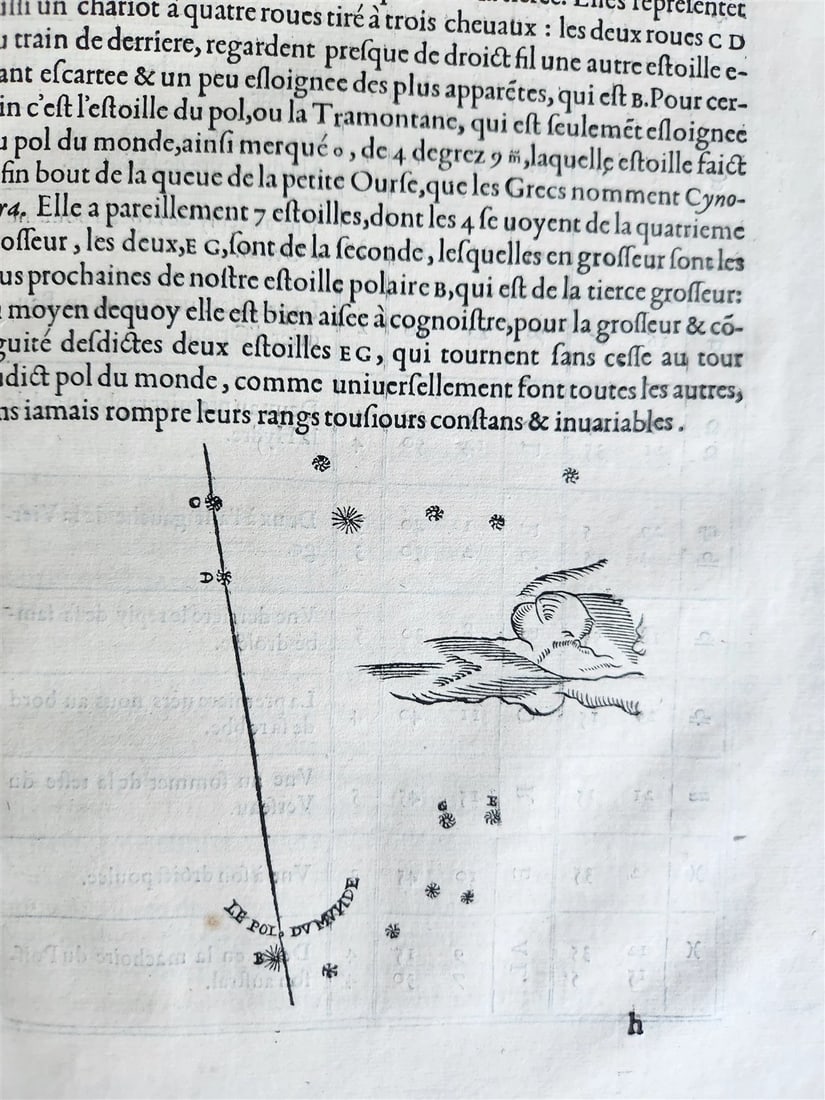 un chariot à quatre roues tiré à trois cheuaux : les deux roues C D
train de derriere, regardent preſque de droict fil une autre eſtoille e-
ant eſcartee & un peu eſloignee des plus apparẽtes, qui eſt B. Pour cer-
in c'eſt l'eſtoille du pol, ou la Tramontane, qui eſt ſeulemẽt eſloignee
pol du monde, ainſi merqué o, de 4 degrez 9 m̃, laquelle eſtoille faict
fin bout de la queue de la petite Ourſe, que les Grecs nomment Cyno-
ra. Elle a pareillement 7 eſtoilles, dont les 4 ſe uoyent de la quatrieme
oſſeur, les deux, E G, ſont de la ſeconde, leſquelles en groſſeur ſont les
us prochaines de noſtre eſtoille polaire B, qui eſt de la tierce groſſeur:
moyen dequoy elle eſt bien aiſee à cognoiſtre, pour la groſſeur & cõ-
guité deſdictes deux eſtoilles E G, qui tournent ſans ceſſe au tour
dict pol du monde, comme uniuerſellement font toutes les autres,
ns iamais rompre leurs rangs touſiours conſtans & inuariables.
C
D
G E
LE POL DV MVNDE
B
h